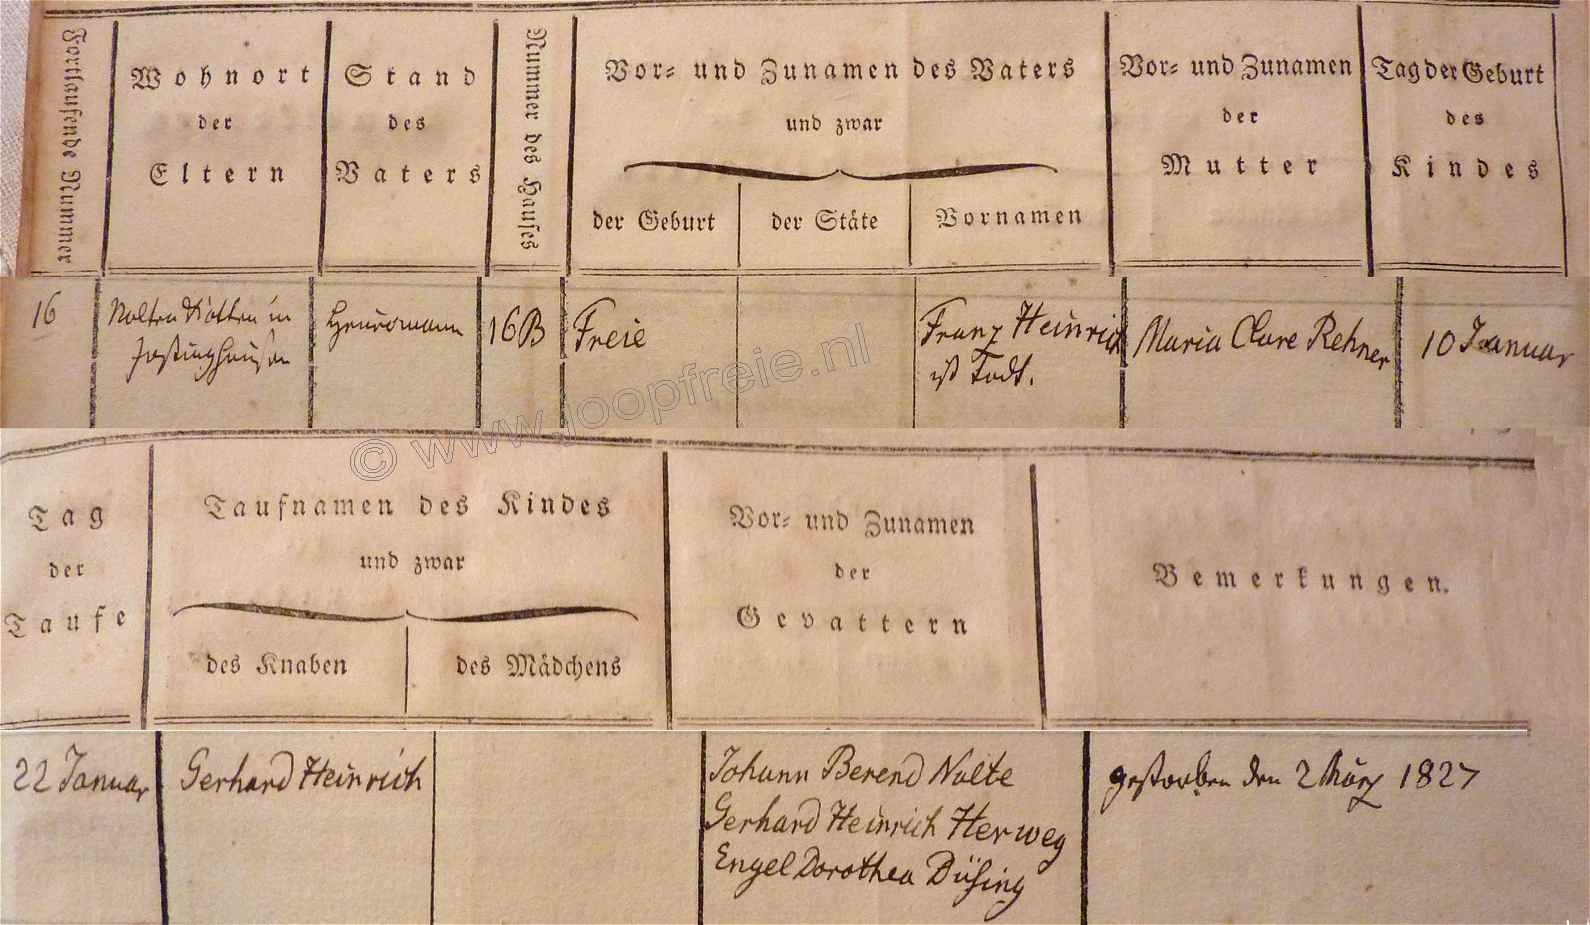 Fortlaufende Nummer
Wohnort
der
Eltern
Stand
des
Vaters
Nummer des Hauses
Vor- und Zunamen des Vaters
und zwar
der Geburt
der Stäte
Vornamen
Vor- und Zunamen
der
Mutter
Tag der Geburt
des
Kindes
16
Nolten Kotten in
Jostinghausen
Heuermann
16B
Freie
Franz Heinrich
ist Todt.
Maria Clare Rehner
10 Januar
© www.joopfreie.nl
Tag
der
Taufe
Taufnamen des Kindes
und zwar
des Knaben
des Mädchens
Vor- und Zunamen
der
Gevattern
Bemerkungen.
22 Januar
Gerhard Heinrich
Johann Berend Nolte
Gerhard Heinrich Herweg
Engel Dorothea Düsing
gestorben den 2 März 1827